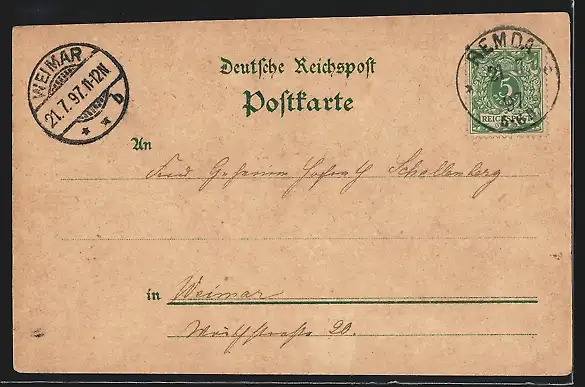 WEIMAR
21.7.97.11-12N
* * b
Deutsche Reichspost
Postkarte
REMDA
21
97
5
REICHSPOST
An
Frau Geheimen Hofrath Schellenberg
in Weimar
20.